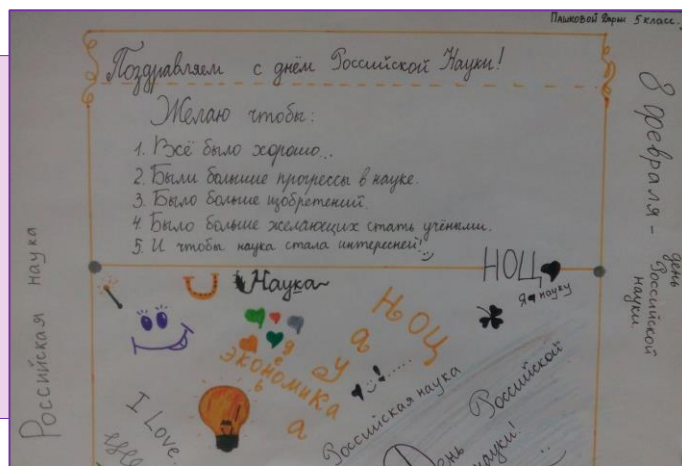 Пашковой Дарьи 5 класс.
Поздравляем с днём Российской Науки!
Желаю чтобы:
1. Всё было хорошо...
2. Были большие прогрессы в науке.
3. Было больше изобретений.
4. Было больше желающих стать учёными.
5. И чтобы наука стала интересней!
8 февраля -
день
Российской
науки
Российская наука
НОЦ
Я науку
Наука
НОЦ
экономика
I Love
Российская наука
День Российской
науки!